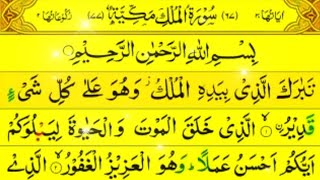 اٰیَاتُهَا ٣٠ (٦٧) سُوْرَةُ الْمُلْكِ مَكِّيَّةٌ (٧٧) رُكُوْعَاتُهَا ٢
بِسْمِ اللّٰهِ الرَّحْمٰنِ الرَّحِيْمِ
تَبٰرَكَ الَّذِىْ بِيَدِهِ الْمُلْكُ ز وَهُوَ عَلٰى كُلِّ شَىْءٍ
قَدِيْرُ ۙ‏﴿١﴾ الَّذِىْ خَلَقَ الْمَوْتَ وَالْحَيٰوةَ لِيَبْلُوَكُمْ
اَيُّكُمْ اَحْسَنُ عَمَلًا ؕ وَهُوَ الْعَزِيْزُ الْغَفُوْرُ ۙ‏﴿٢﴾ الَّذِىْ